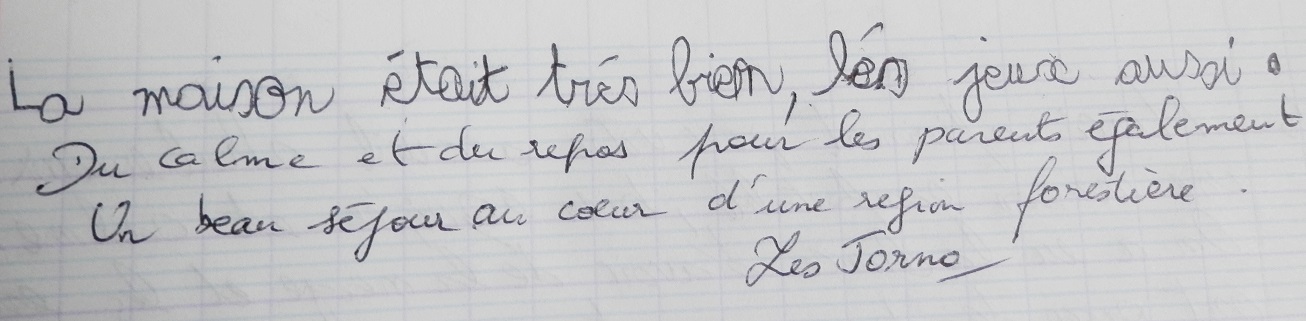 La maison était trés bien, les jeux aussi.
Du calme et du repos pour les parents également
Un beau séjour au coeur d'une region forestière.
Les Torno